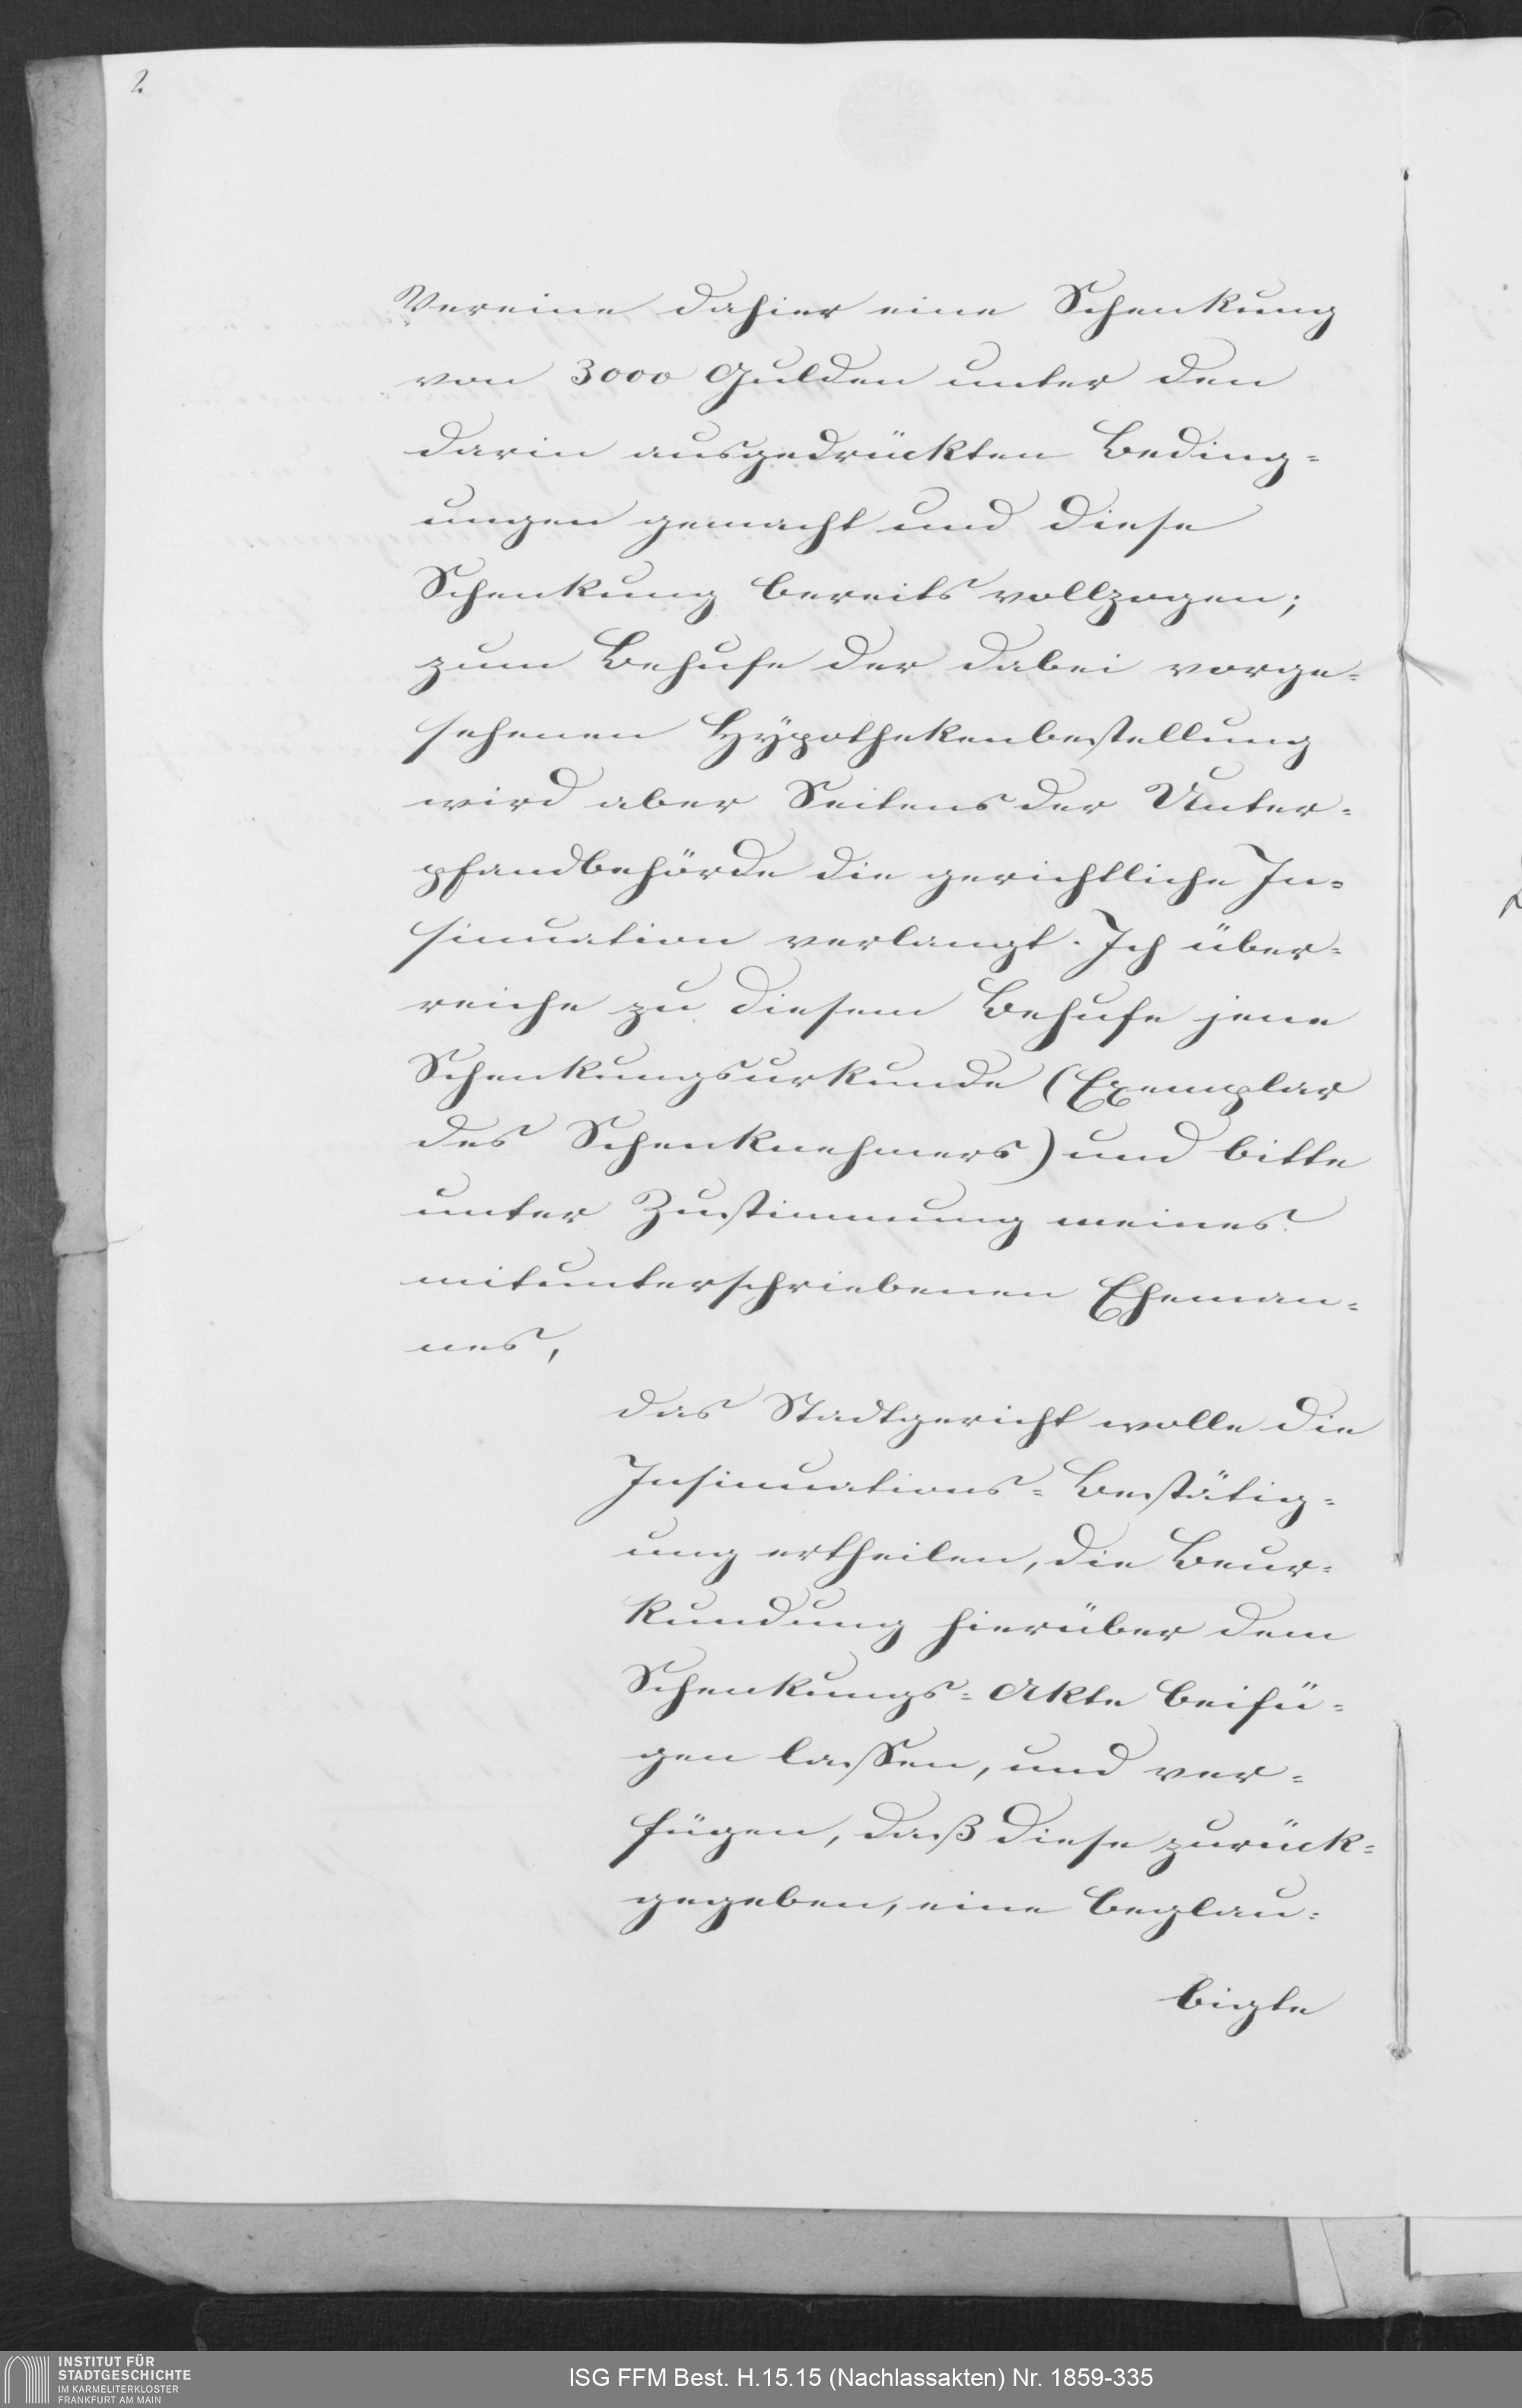 2.
Vereine dahier eine Schenkung
von 3000 Gulden unter den
darin ausgedrückten Beding=
ungen gemacht und diese
Schenkung bereits vollzogen;
zum Behufe der dabei vorge=
sehenen Hÿpothekenbestellung
wird aber Seitens der Unter=
pfandbehörde die gerichtliche In=
sinuation verlangt. Ich über=
reiche zu diesem Behufe jene
Schenkungsurkunde (Exemplar
des Schenknehmers) und bitte
unter Zustimmung meines
mitunterschriebenen Eheman=
nes,
das Stadtgericht wolle die
Insinuations=Bestätig=
ung ertheilen, die Beur=
kundung hierüber dem
Schenkungs=Akte beifü=
gen lassen, und ver=
fügen, daß diese zurück=
gegeben, eine beglau=
bigte
INSTITUT FÜR
STADTGESCHICHTE
IM KARMELITERKLOSTER
FRANKFURT AM MAIN
ISG FFM Best. H.15.15 (Nachlassakten) Nr. 1859-335